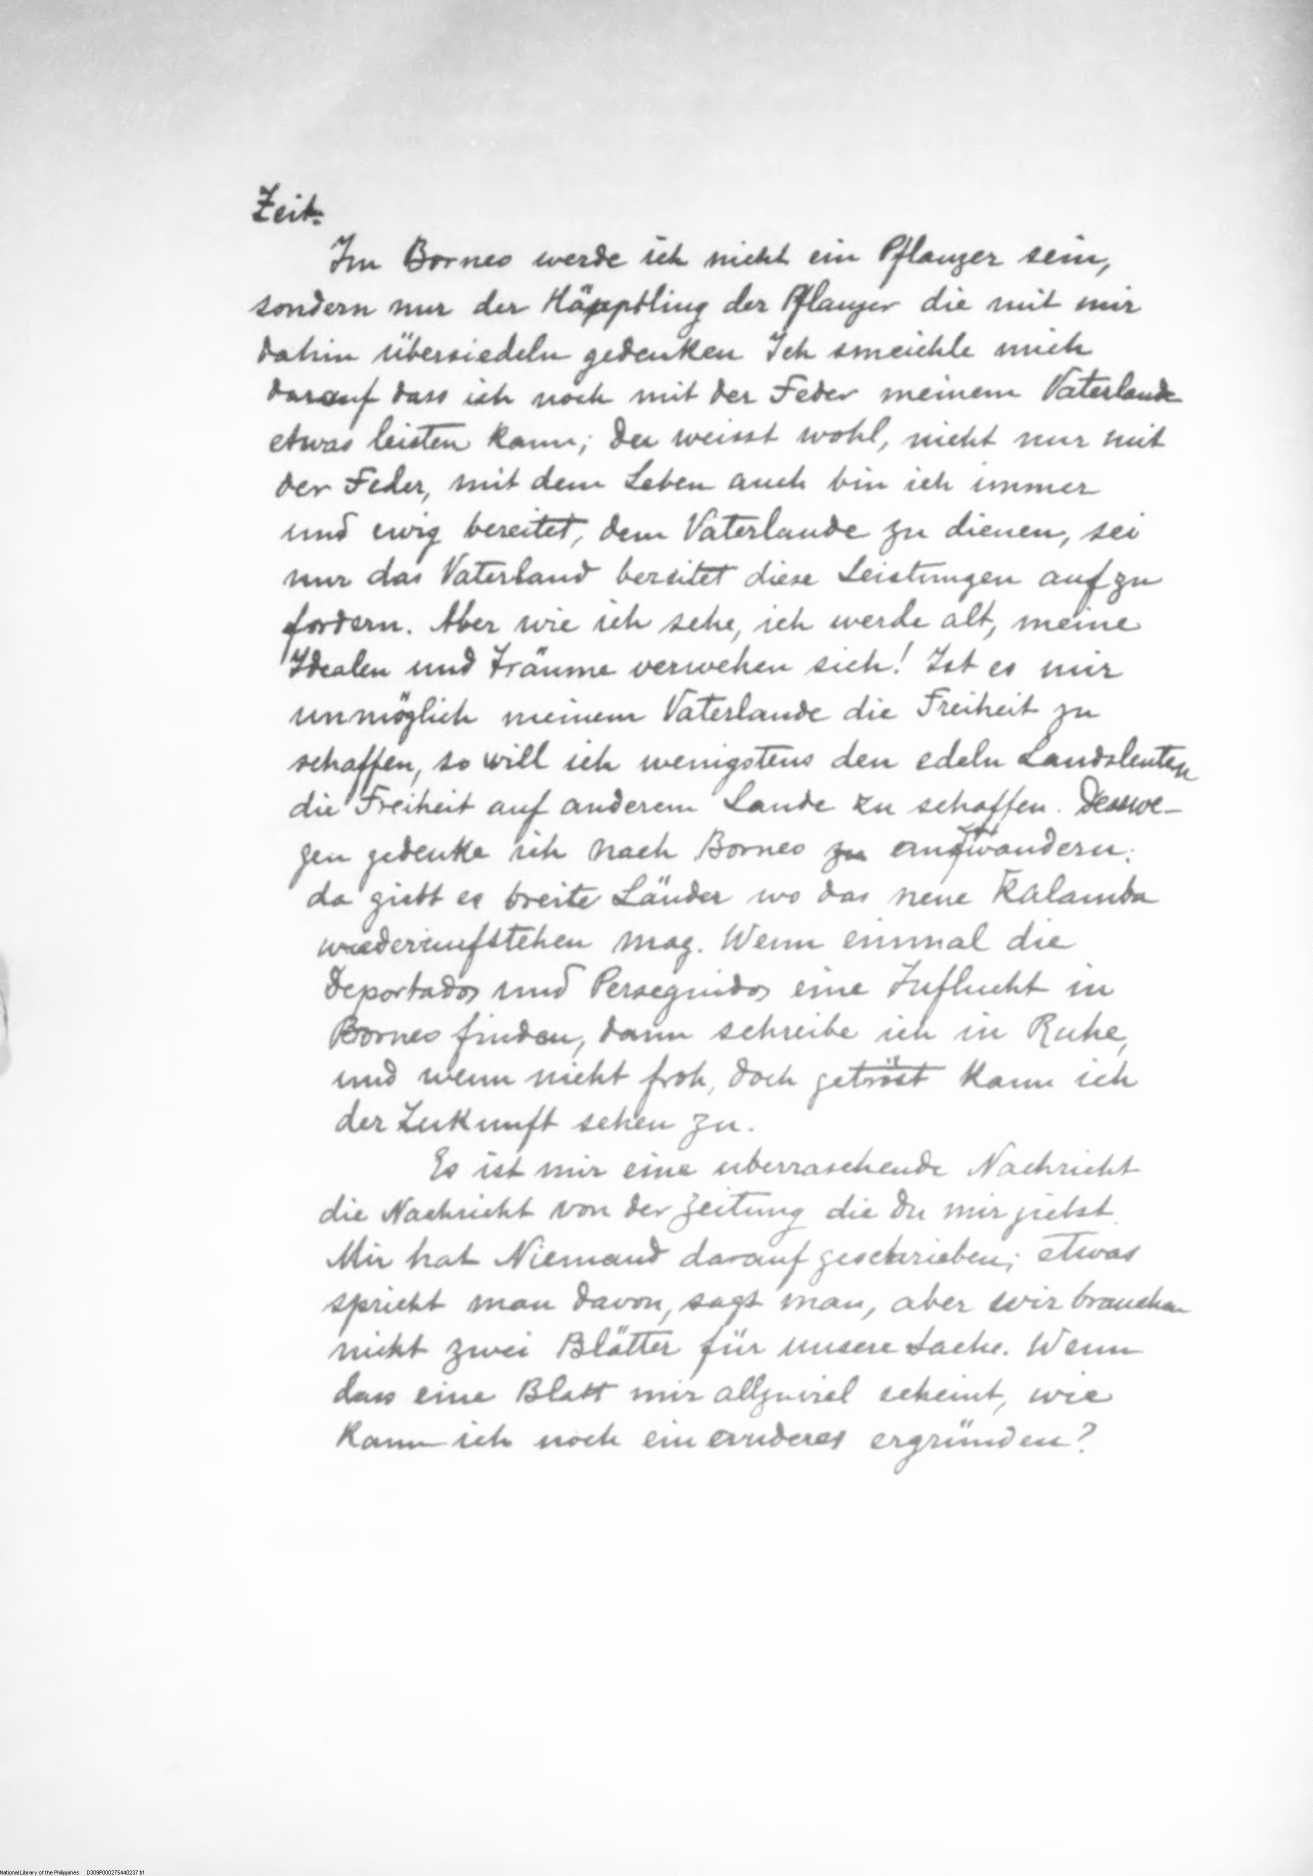 Zeit.
Im Borneo werde ich nicht ein Pflanzer sein,
sondern nur der Häpptling der Pflanzer die mit mir
dahin übersiedeln gedenken Ich smeichle mich
darauf dass ich noch mit der Feder meinem Vaterlande
etwas leisten kann; du weisst wohl, nicht nur mit
der Feder, mit dem Leben auch bin ich immer
und ewig bereitet, dem Vaterlande zu dienen, sei
nur das Vaterland bereitet diese Leistungen aufzu
fordern. Aber wie ich sehe, ich werde alt, meine
Idealen und Träume verwehen sich! Ist es mir
unmöglich meinem Vaterlande die Freiheit zu
schaffen, so will ich wenigstens den edeln Landsleuten
die Freiheit auf anderem Lande zu schaffen. Desswe-
gen gedenke ich nach Borneo zu wandern:
da giebt es breite Länder wo das neue Kalamba
wiederaufstehen mag. Wenn einmal die
Deportados und Perseguidos eine Zuflucht in
Borneo finden, dann schreibe ich in Ruhe,
und wenn nicht froh, doch getröst kann ich
der Zukunft sehen zu.
Es ist mir eine uberraschende Nachricht
die Nachricht von der Zeitung die du mir giebst.
Mir hat Niemand darauf geschrieben; etwas
spricht man davon, sagt man, aber wir brauchen
nicht zwei Blätter für unsere Sache. Wenn
dass eine Blatt mir allzuviel scheint, wie
kann ich noch ein anderes ergründen?
National Library of the Philippines D309P000275440237.tif